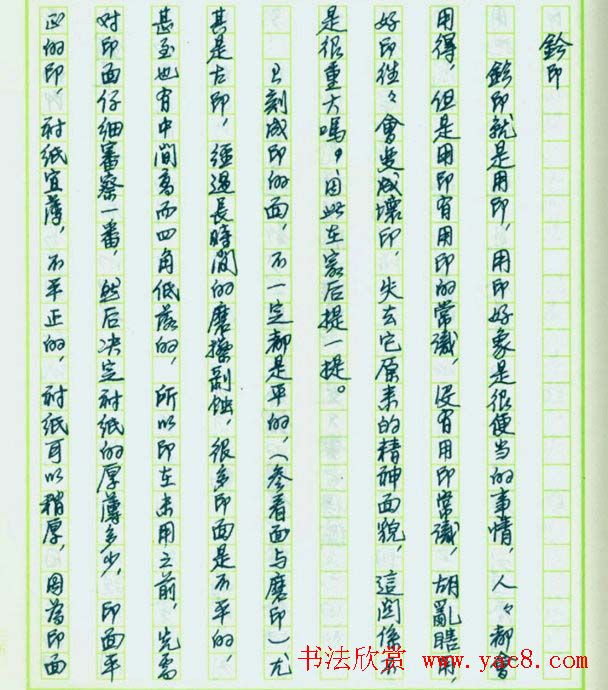 鈐印
鈐印就是用印，用印好象是很便当的事情，人々都會
用得，但是用印有用印的常識，没有用印常識，胡亂瞎用，
好印往々會变成壞印，失去它原来的精神面貌，這関係不
是很重大嗎，因此在最后提一提。
已刻成印的面，不一定都是平的，（参看面与磨印）尤
其是古印，經過長時間的磨擦剥蝕，很多印面是不平的，
甚至也有中間高而四角低落的，所以印在未用之前，先需
对印面仔细審察一番，然后决定衬纸的厚薄多少，印面平
正的印，衬紙宜薄，不平正的，衬紙可以稍厚，因為印面
书法欣赏 www.yac8.com